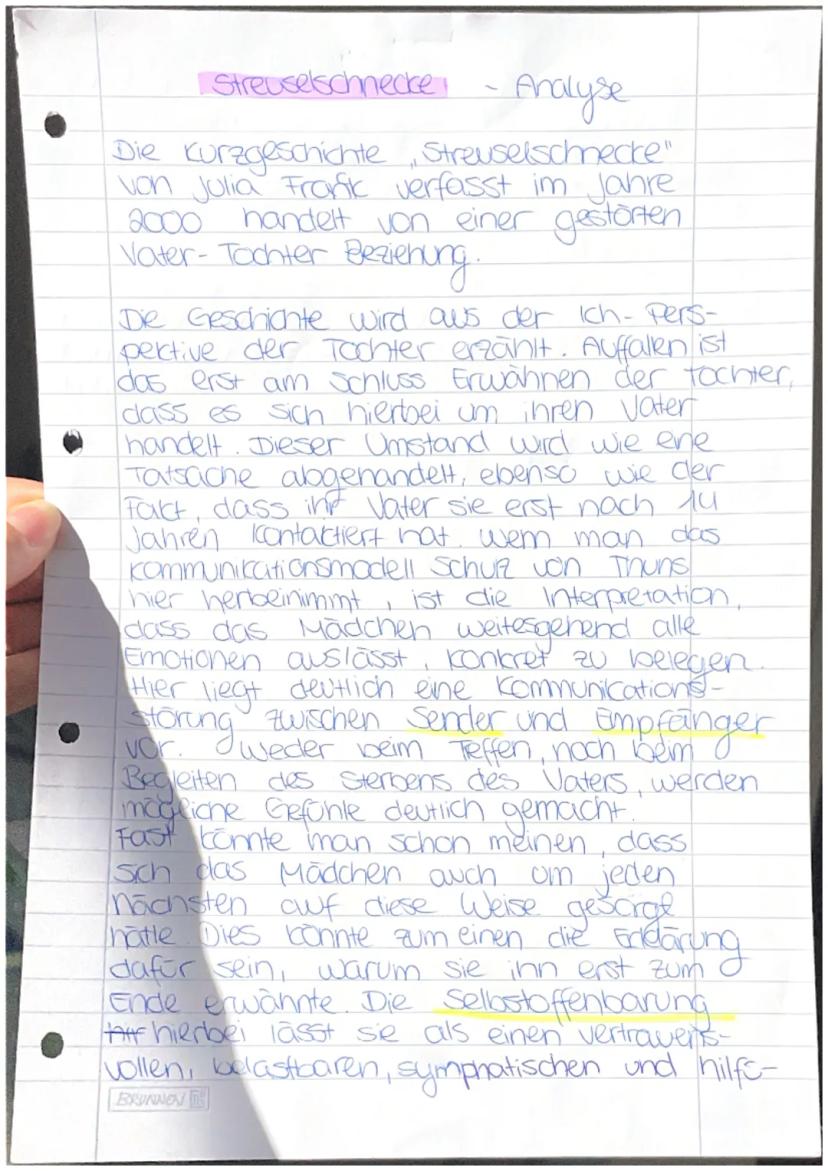 Streuselschnecke - Analyse
Die Kurzgeschichte „Streuselschnecke"
von Julia Frank verfasst im Jahre
2000 handelt von einer gestörten
Vater-Tochter Beziehung.
Die Geschichte wird aus der Ich-Pers-
pektive der Tochter erzählt. Auffallen ist
das erst am Schluss Erwähnen der Tochter,
dass es sich hierbei um ihren Vater
handelt. Dieser Umstand wird wie eine
Tatsache abgehandelt, ebenso wie der
Fakt, dass ihr Vater sie erst nach 14
Jahren kontaktiert hat. Wenn man das
Kommunikationsmodell Schulz von Thuns
hier herbeinimmt, ist die Interpretation,
dass das Mädchen weitesgehend alle
Emotionen auslässt, konkret zu belegen.
Hier liegt deutlich eine Kommunications-
störung zwischen Sender und Empfänger
vor. Weder beim Treffen, noch beim
Begleiten des Sterbens des Vaters, werden
mögliche Gefühle deutlich gemacht.
Fast könnte man schon meinen, dass
sich das Mädchen auch um jeden
nächsten auf diese Weise gesorgt
hätte. Dies könnte zum einen die Erklärung
dafür sein, warum sie ihn erst zum
Ende erwähnte. Die Selbstoffenbarung
hierbei lässt sie als einen vertrauens-
vollen, belastbaren, symphatischen und hilfs-
BRUNNEN